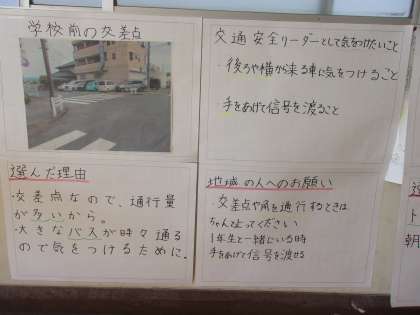 学校前の交差点
選んだ理由
・交差点なので、通行量
が多いから。
・大きなバスが時々通る
ので気をつけるために。
交通安全リーダーとして気をつけたいこと
・後ろや横から来る車に気をつけること
・手をあげて信号を渡ること
地域の人へのお願い
・交差点や
を通行するときは
ちゃんと
ってください
1年生と一緒にいる時
手をあげて信号を渡せる
朝